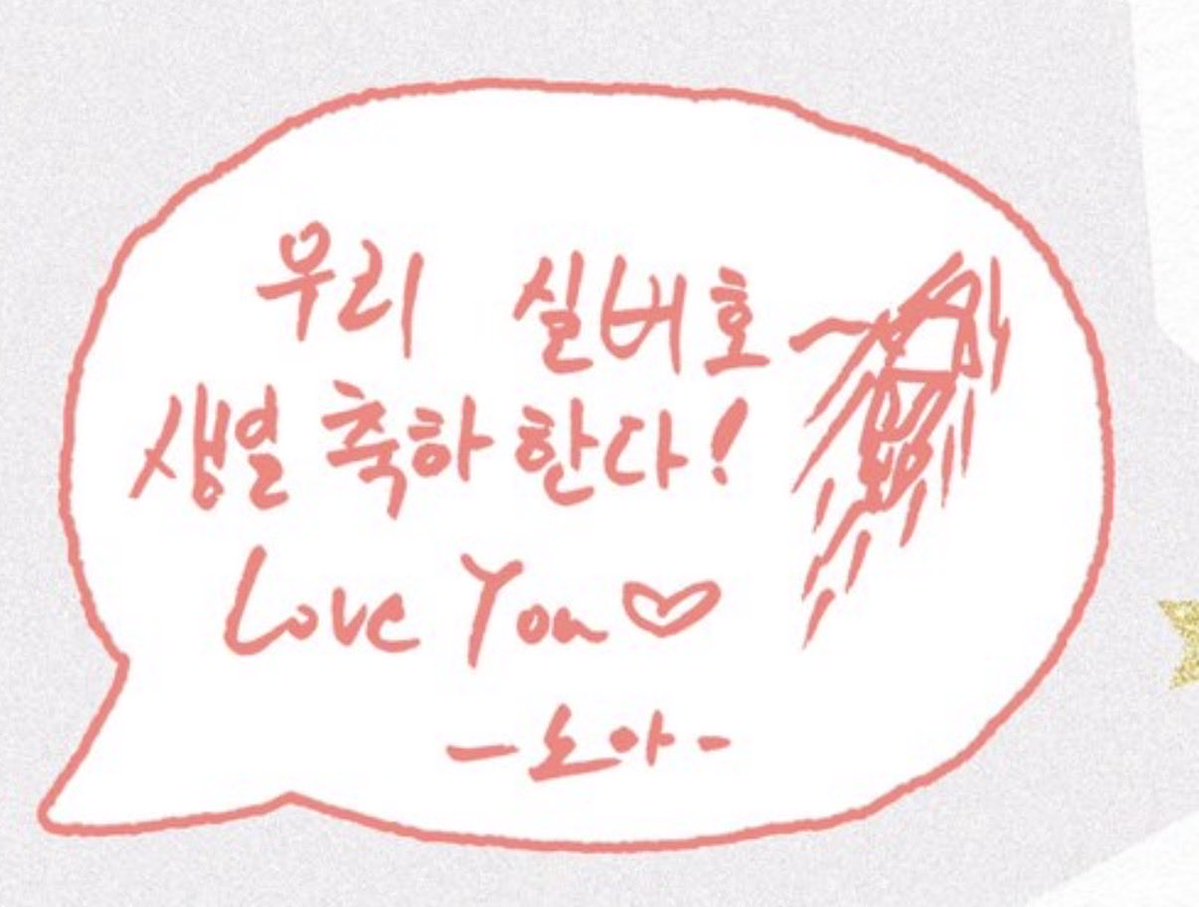 우리 실버호~
생일 축하 한다!
Love You♡
-노아-